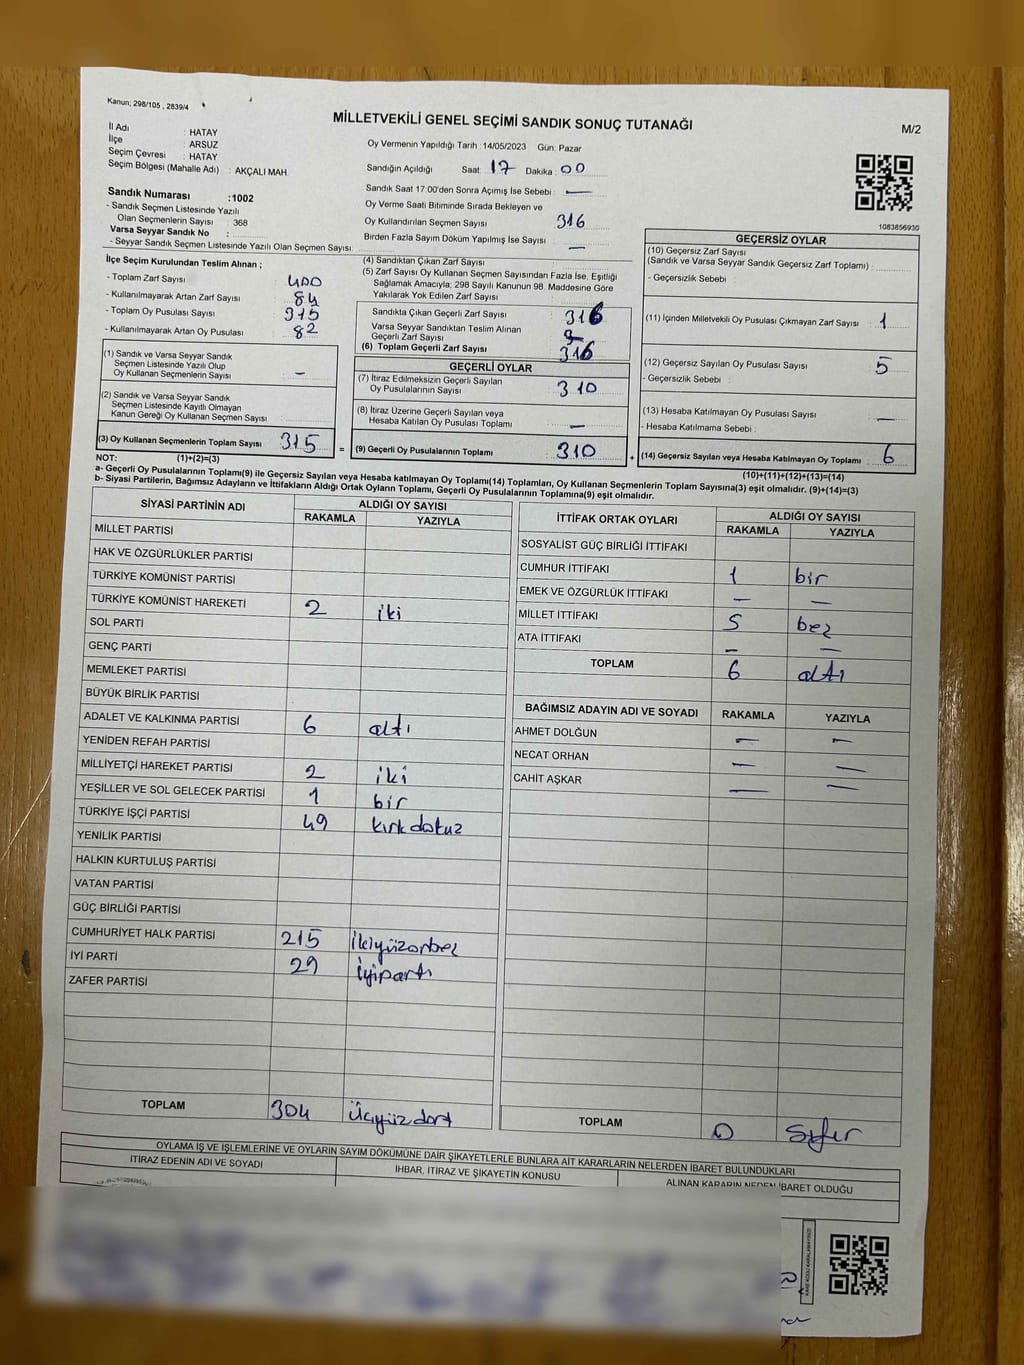 Kanun; 298/105 , 2839/4
MİLLETVEKİLİ GENEL SEÇİMİ SANDIK SONUÇ TUTANAĞI
M/2
İl Adı : HATAY
İlçe : ARSUZ
Seçim Çevresi : HATAY
Seçim Bölgesi (Mahalle Adı) : AKÇALI MAH.
Sandık Numarası :1002
- Sandık Seçmen Listesinde Yazılı
Olan Seçmenlerin Sayısı : 368
Varsa Seyyar Sandık No :
- Seyyar Sandık Seçmen Listesinde Yazılı Olan Seçmen Sayısı:
Oy Vermenin Yapıldığı Tarih :14/05/2023 Gün: Pazar
Sandığın Açıldığı Saat: 17 Dakika: 00
Sandık Saat 17.00'den Sonra Açımış İse Sebebi : —
Oy Verme Saati Bitiminde Sırada Bekleyen ve
Oy Kullandırılan Seçmen Sayısı : 316
Birden Fazla Sayım Döküm Yapılmış İse Sayısı : —
1083856930
İlçe Seçim Kurulundan Teslim Alınan ;
- Toplam Zarf Sayısı : 400
- Kullanılmayarak Artan Zarf Sayısı : 84
- Toplam Oy Pusulası Sayısı : 315
- Kullanılmayarak Artan Oy Pusulası : 82
(1) Sandık ve Varsa Seyyar Sandık
Seçmen Listesinde Yazılı Olup
Oy Kullanan Seçmenlerin Sayısı : —
(2) Sandık ve Varsa Seyyar Sandık
Seçmen Listesinde Kayıtlı Olmayan
Kanun Gereği Oy Kullanan Seçmen Sayısı :
(3) Oy Kullanan Seçmenlerin Toplam Sayısı : 315 =
(4) Sandıktan Çıkan Zarf Sayısı :
(5) Zarf Sayısı Oy Kullanan Seçmen Sayısından Fazla İse, Eşitliği
Sağlamak Amacıyla; 298 Sayılı Kanunun 98. Maddesine Göre
Yakılarak Yok Edilen Zarf Sayısı :
Sandıkta Çıkan Geçerli Zarf Sayısı : 316
Varsa Seyyar Sandıktan Teslim Alınan
Geçerli Zarf Sayısı :
(6) Toplam Geçerli Zarf Sayısı : 316
GEÇERLİ OYLAR
(7) İtiraz Edilmeksizin Geçerli Sayılan
Oy Pusulalarının Sayısı : 310
(8) İtiraz Üzerine Geçerli Sayılan veya
Hesaba Katılan Oy Pusulası Toplamı : —
(9) Geçerli Oy Pusulalarının Toplamı : 310 +
GEÇERSİZ OYLAR
(10) Geçersiz Zarf Sayısı
(Sandık ve Varsa Seyyar Sandık Geçersiz Zarf Toplamı) :
- Geçersizlik Sebebi :
(11) İçinden Milletvekili Oy Pusulası Çıkmayan Zarf Sayısı : 1
(12) Geçersiz Sayılan Oy Pusulası Sayısı : 5
- Geçersizlik Sebebi :
(13) Hesaba Katılmayan Oy Pusulası Sayısı : —
- Hesaba Katılmama Sebebi :
(14) Geçersiz Sayılan veya Hesaba Katılmayan Oy Toplamı : 6
NOT: (1)+(2)=(3)
(10)+(11)+(12)+(13)=(14)
a- Geçerli Oy Pusulalarının Toplamı(9) ile Geçersiz Sayılan veya Hesaba katılmayan Oy Toplamı(14) Toplamları, Oy Kullanan Seçmenlerin Toplam Sayısına(3) eşit olmalıdır. (9)+(14)=(3)
b- Siyasi Partilerin, Bağımsız Adayların ve İttifakların Aldığı Ortak Oyların Toplamı, Geçerli Oy Pusulalarının Toplamına(9) eşit olmalıdır.
SİYASİ PARTİNİN ADI ALDIĞI OY SAYISI
RAKAMLA YAZIYLA
MİLLET PARTİSİ
HAK VE ÖZGÜRLÜKLER PARTİSİ
TÜRKİYE KOMÜNİST PARTİSİ
TÜRKİYE KOMÜNİST HAREKETİ 2 iki
SOL PARTİ
GENÇ PARTİ
MEMLEKET PARTİSİ
BÜYÜK BİRLİK PARTİSİ
ADALET VE KALKINMA PARTİSİ 6 altı
YENİDEN REFAH PARTİSİ
MİLLİYETÇİ HAREKET PARTİSİ 2 iki
YEŞİLLER VE SOL GELECEK PARTİSİ 1 bir
TÜRKİYE İŞÇİ PARTİSİ 49 kırk dokuz
YENİLİK PARTİSİ
HALKIN KURTULUŞ PARTİSİ
VATAN PARTİSİ
GÜÇ BİRLİĞİ PARTİSİ
CUMHURİYET HALK PARTİSİ 215 ikiyüzonbeş
İYİ PARTİ 29 iyiparti
ZAFER PARTİSİ
TOPLAM 304 üçyüz dört
İTTİFAK ORTAK OYLARI ALDIĞI OY SAYISI
RAKAMLA YAZIYLA
SOSYALİST GÜÇ BİRLİĞİ İTTİFAKI
CUMHUR İTTİFAKI 1 bir
EMEK VE ÖZGÜRLÜK İTTİFAKI — —
MİLLET İTTİFAKI 5 beş
ATA İTTİFAKI — —
TOPLAM 6 altı
BAĞIMSIZ ADAYIN ADI VE SOYADI RAKAMLA YAZIYLA
AHMET DOLĞUN — —
NECAT ORHAN — —
CAHİT AŞKAR — —
TOPLAM 0 Sıfır
OYLAMA İŞ VE İŞLEMLERİNE VE OYLARIN SAYIM DÖKÜMÜNE DAİR ŞİKAYETLERLE BUNLARA AİT KARARLARIN NELERDEN İBARET BULUNDUKLARI
İTİRAZ EDENİN ADI VE SOYADI
İHBAR, İTİRAZ VE ŞİKAYETİN KONUSU
ALINAN KARARIN NEDEN İBARET OLDUĞU